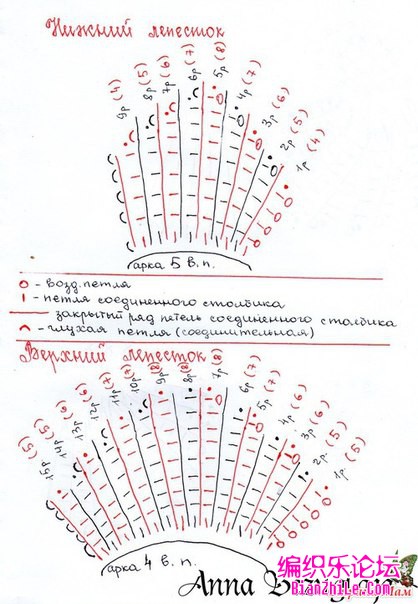 Нижний лепесток
9р (4) 8р (5) 7р (6) 6р (7) 5р (8) 4р (7) 3р (6) 2р (5) 1р (4)
арка 5 в.п.
- возд. петля
- петля соединенного столбика
закрытый ряд петель соединенного столбика
- глухая петля (соединительная)
Верхний лепесток
15р (5) 14р (5) 13р (6) 12р (6) 11р (7) 10р (7) 9р (8) 8р (8) 7р (8) 6р (7) 5р (7) 4р (6) 3р (6) 2р (5) 1р (5)
арка 4 в.п.
编织乐论坛
Anna
Мам
BianZhiLe.Com